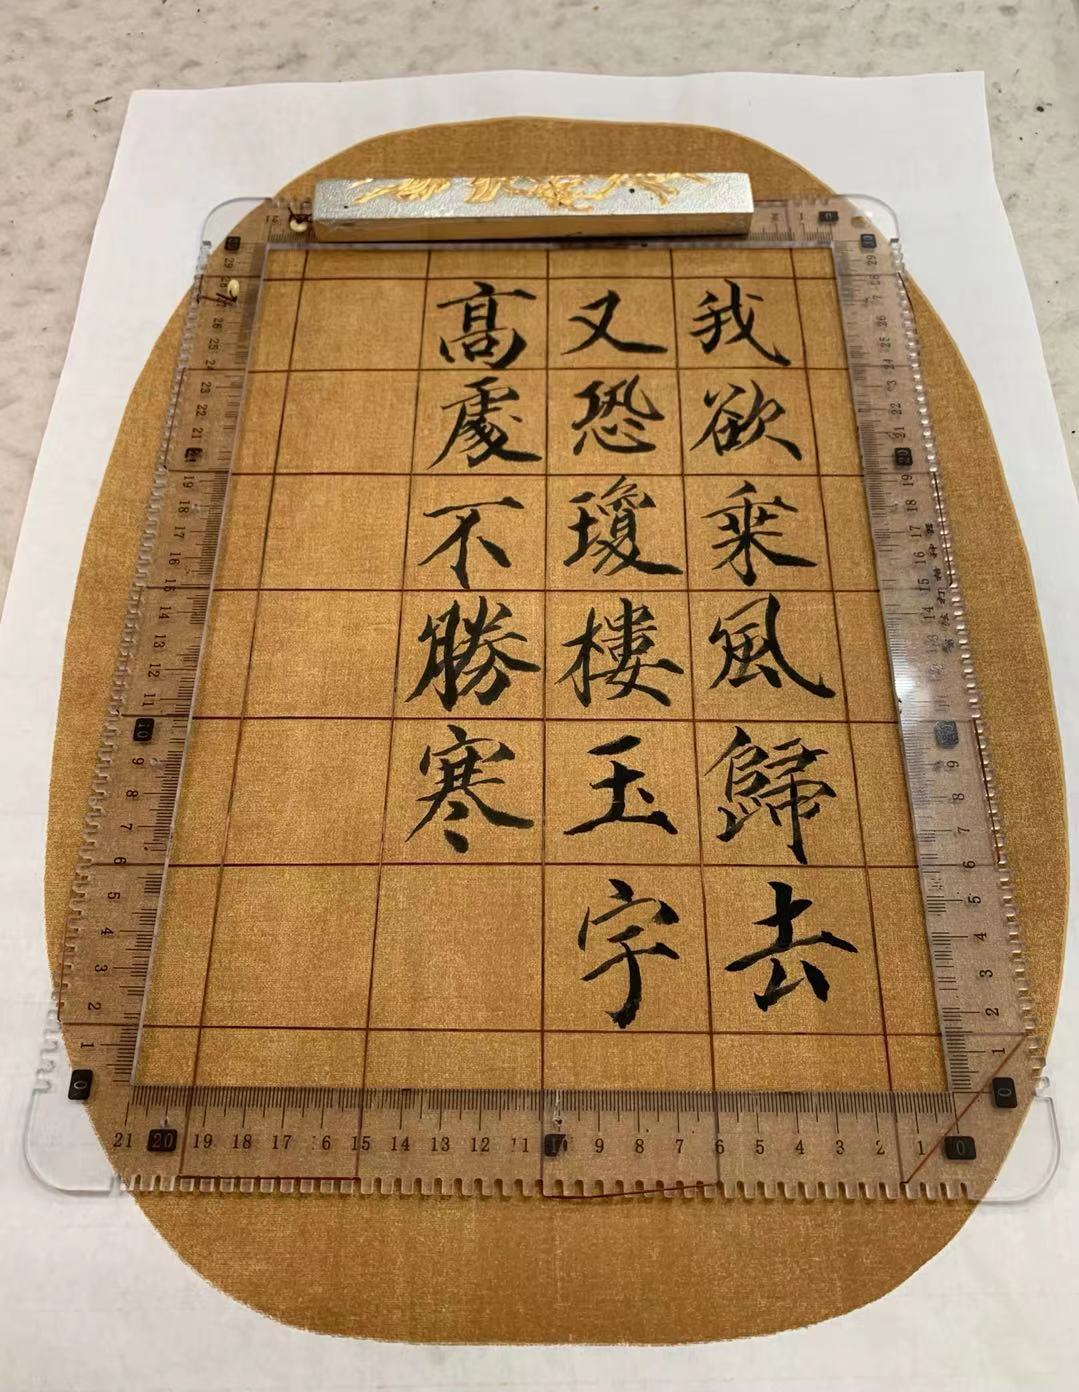 我欲乘風歸去
又恐瓊樓玉宇
高處不勝寒